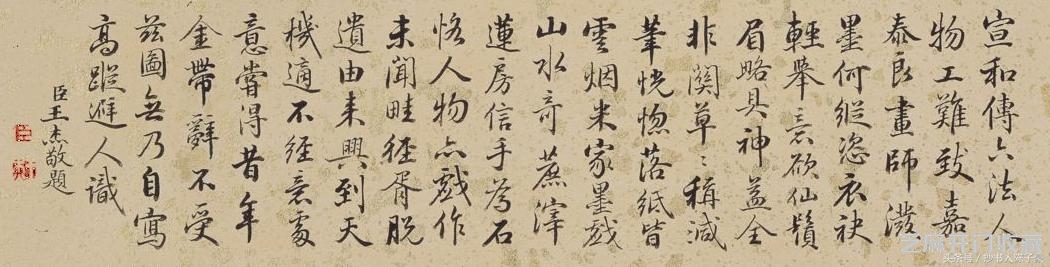 宣和傳六法人
物工難致嘉
泰良畫師潑
墨何縱恣衣袂
輕舉意欲仙鬚
眉略具神益全
非關草〻稱減
筆恍惚落紙皆
雲烟米家墨戲
山水奇蔗滓
蓮房信手為石
恪人物亦戲作
未聞畦徑胥脫
遺由来興到天
機適不經意處
意嘗得昔年
金帶辭不受
茲圖無乃自寫
高蹤避人識
臣王杰敬題
头条号